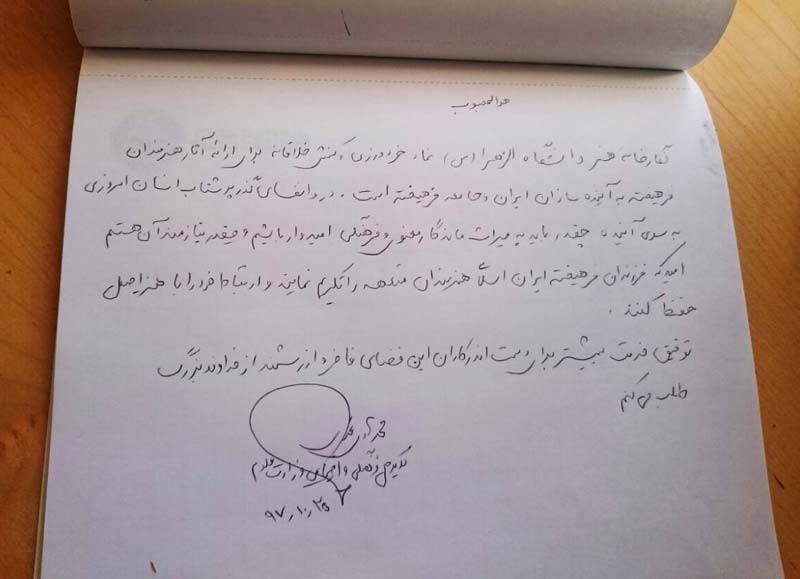 هوالمحبوب
نگارخانه هنر دانشگاه الزهرا (س) نماد خردورزی و کنش خلاقانه برای ارائه آثار هنرمندان
فرهیخته به آینده سازان ایران و جامعه فرهیخته است. در وانفسای گذر پرشتاب انسان امروزی
به سوی آینده چقدر باید به میراث ماندگار معنوی و فرهنگی امیدوار باشیم و چقدر نیازمند آن هستم
امید که فرزندان فرهیخته ایران اسلامی هنرمندان متعهد را تکریم نمایند و ارتباط خود را با هنر اصیل
حفظ کنند.
توفیق خدمت بیشتر برای دست اندرکاران این فضای فاخر و ارزشمند از خداوند بزرگ
طلب می کنم
محمد
مدیرکل فرهنگی و اجتماعی وزارت علوم
۹۷٫۱۰٫۲۵